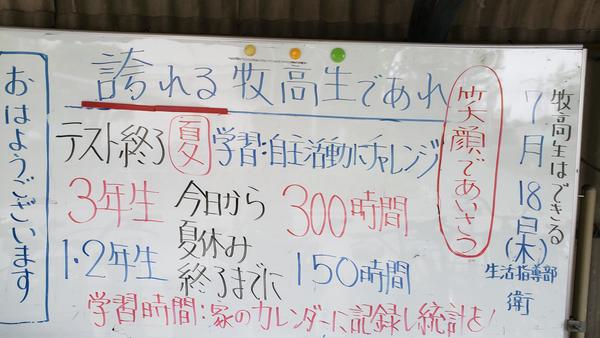 誇れる牧高生であれ
牧高生はできる
7月18日(木)
生活指導部
衛
笑顔であいさつ
おはようございます
テスト終了 夏 学習:自主活動にチャレンジ
3年生 今日から 300時間
夏休み
1・2年生 終了までに 150時間
学習時間:家のカレンダーに記録し統計を!